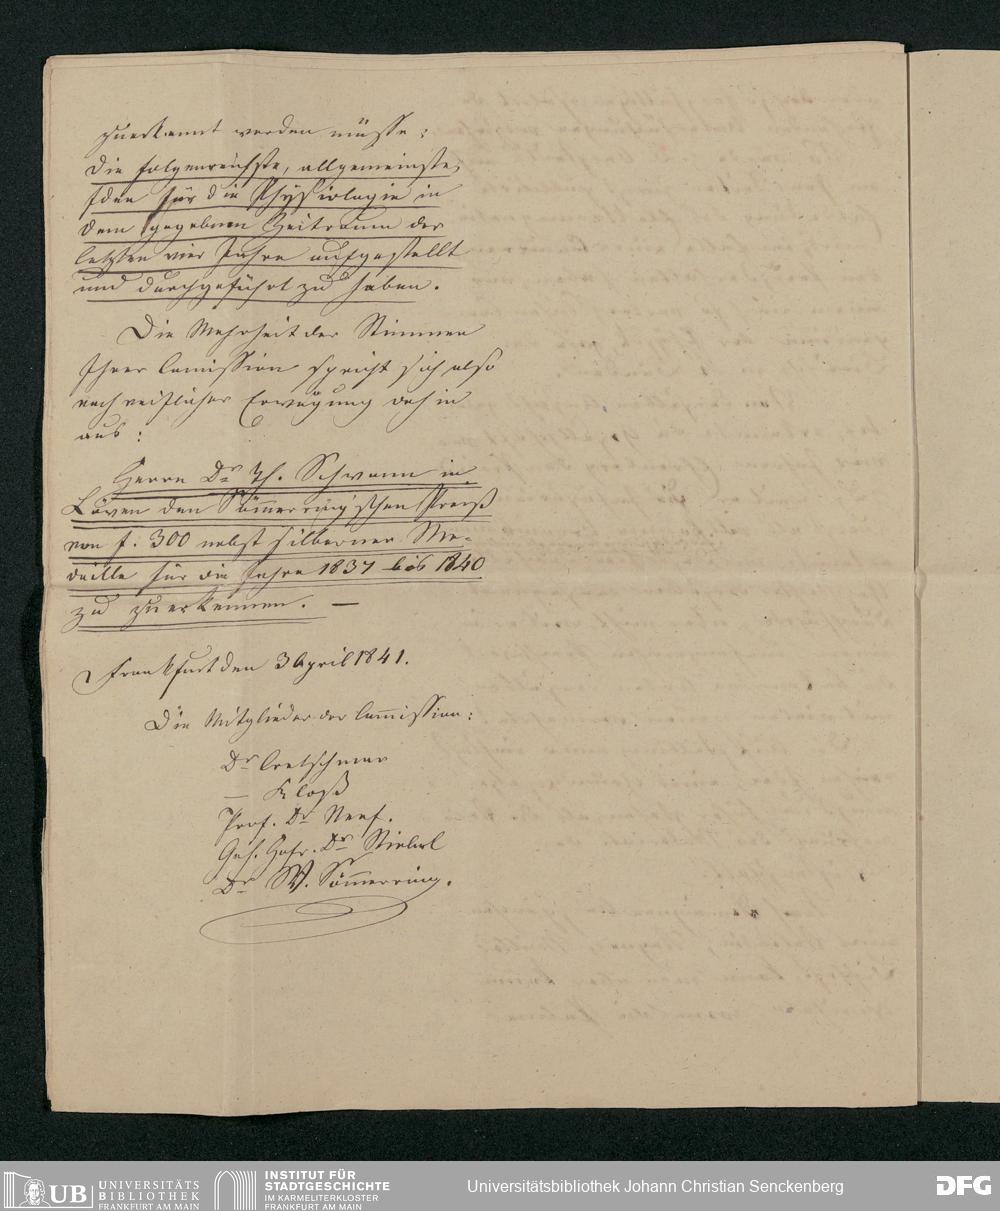 zuerkannt werden müsse:
die folgenreichste, allgemeinste
Idee für die Physiologie in
dem gegebnen Zeitraum der
letzten vier Jahre aufgestellt
und durchgeführt zu haben.
Die Mehrheit der Stimmen
Ihrer Comission spricht sich also
nach reiflicher Erwägung dahin
aus:
Herrn Dr Th. Schwann in
Löven den Sömerring'schen Preiß
von f. 300 nebst silberner Me-
daille für die Jahre 1837 bis 1840
zu zuerkennen. —
Frankfurt den 3 April 1841.
Die Mitglieder der Comission:
Dr Cretschmar
— Kloß
Prof. Dr Neef.
Geh. Hofr. Dr Stiebel
Dr W. Sömerring.
UB UNIVERSITÄTS
BIBLIOTHEK
FRANKFURT AM MAIN
INSTITUT FÜR
STADTGESCHICHTE
IM KARMELITERKLOSTER
FRANKFURT AM MAIN
Universitätsbibliothek Johann Christian Senckenberg
DFG